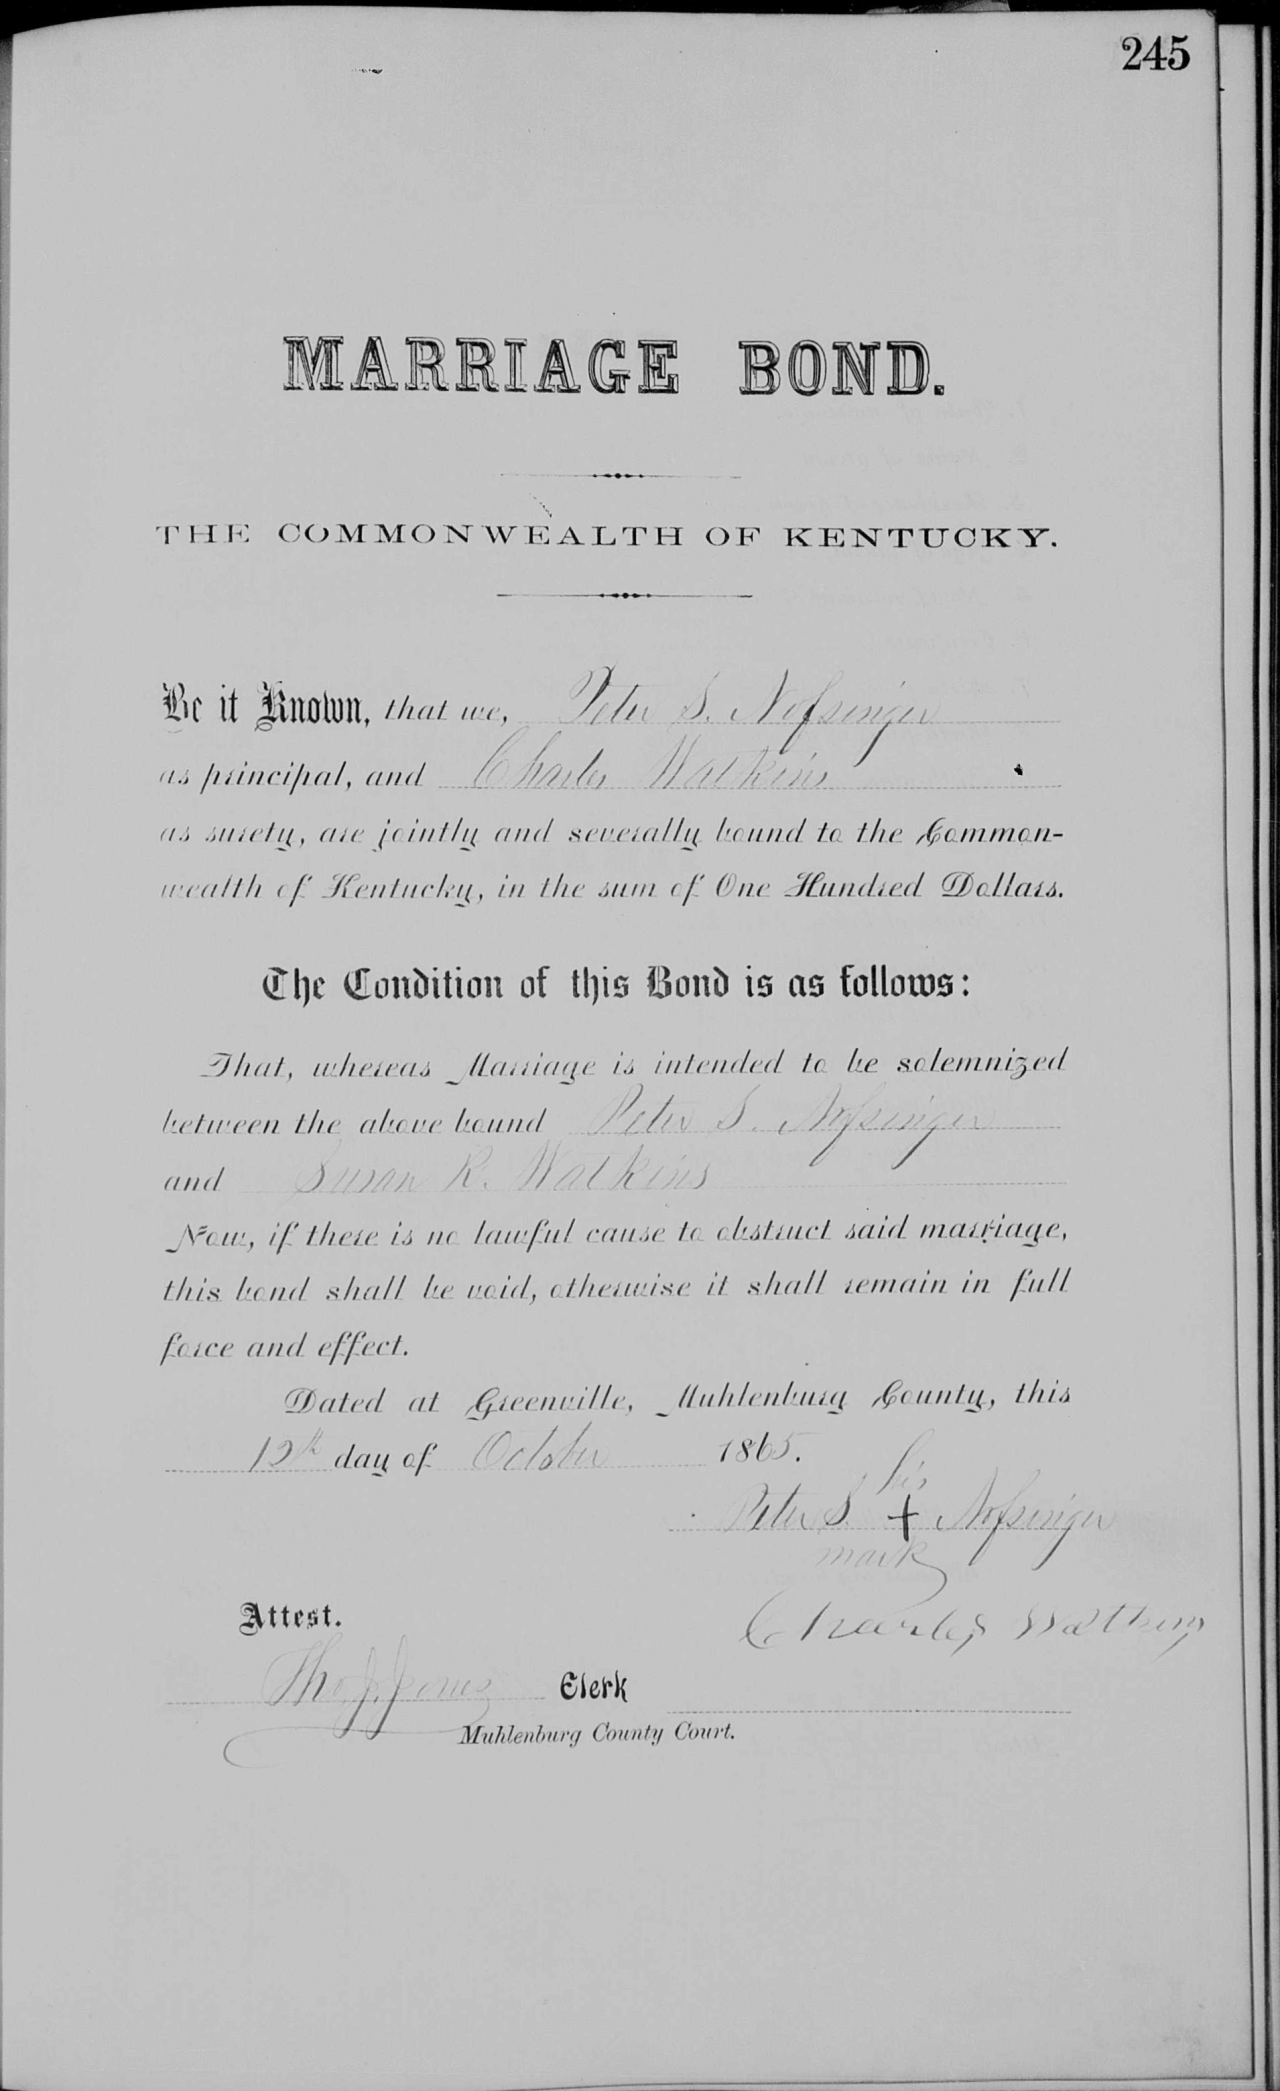 245
MARRIAGE BOND.
THE COMMONWEALTH OF KENTUCKY.
Be it Known, that we, Peter S. Nofsinger
as principal, and Charles Watkins
as surety, are jointly and severally bound to the Common-
wealth of Kentucky, in the sum of One Hundred Dollars.
The Condition of this Bond is as follows:
That, whereas Marriage is intended to be solemnized
between the above bound Peter S. Nofsinger
and Susan R. Watkins
Now, if there is no lawful cause to obstruct said marriage,
this bond shall be void, otherwise it shall remain in full
force and effect.
Dated at Greenville, Muhlenburg County, this
12th day of October 1865.
his
Peter S. + Nofsinger
mark
Charles Watkins
Attest.
Tho. J. Jones Clerk
Muhlenburg County Court.